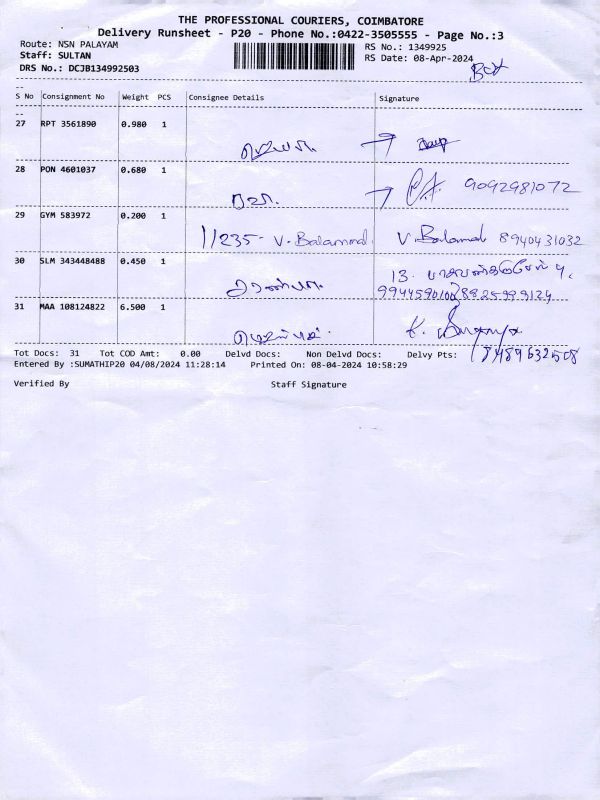 THE PROFESSIONAL COURIERS, COIMBATORE
Delivery Runsheet - P20 - Phone No.:0422-3505555 - Page No.:3
Route: NSN PALAYAM
RS No.: 1349925
Staff: SULTAN
RS Date: 08-Apr-2024
DRS No.: DCJB134992503
S No Consignment No Weight PCS Consignee Details Signature
27 RPT 3561890 0.980 1
28 PON 4601037 0.680 1
9092981072
29 GYM 583972 0.200 1
11235- V. Balammal. V. Balamal 8940431032
30 SLM 343448488 0.450 1
13.
31 MAA 108124822 6.500 1
Tot Docs: 31 Tot COD Amt: 0.00 Delvd Docs: Non Delvd Docs: Delvy Pts:
8489632508
Entered By :SUMATHIP20 04/08/2024 11:28:14 Printed On: 08-04-2024 10:58:29
Verified By Staff Signature